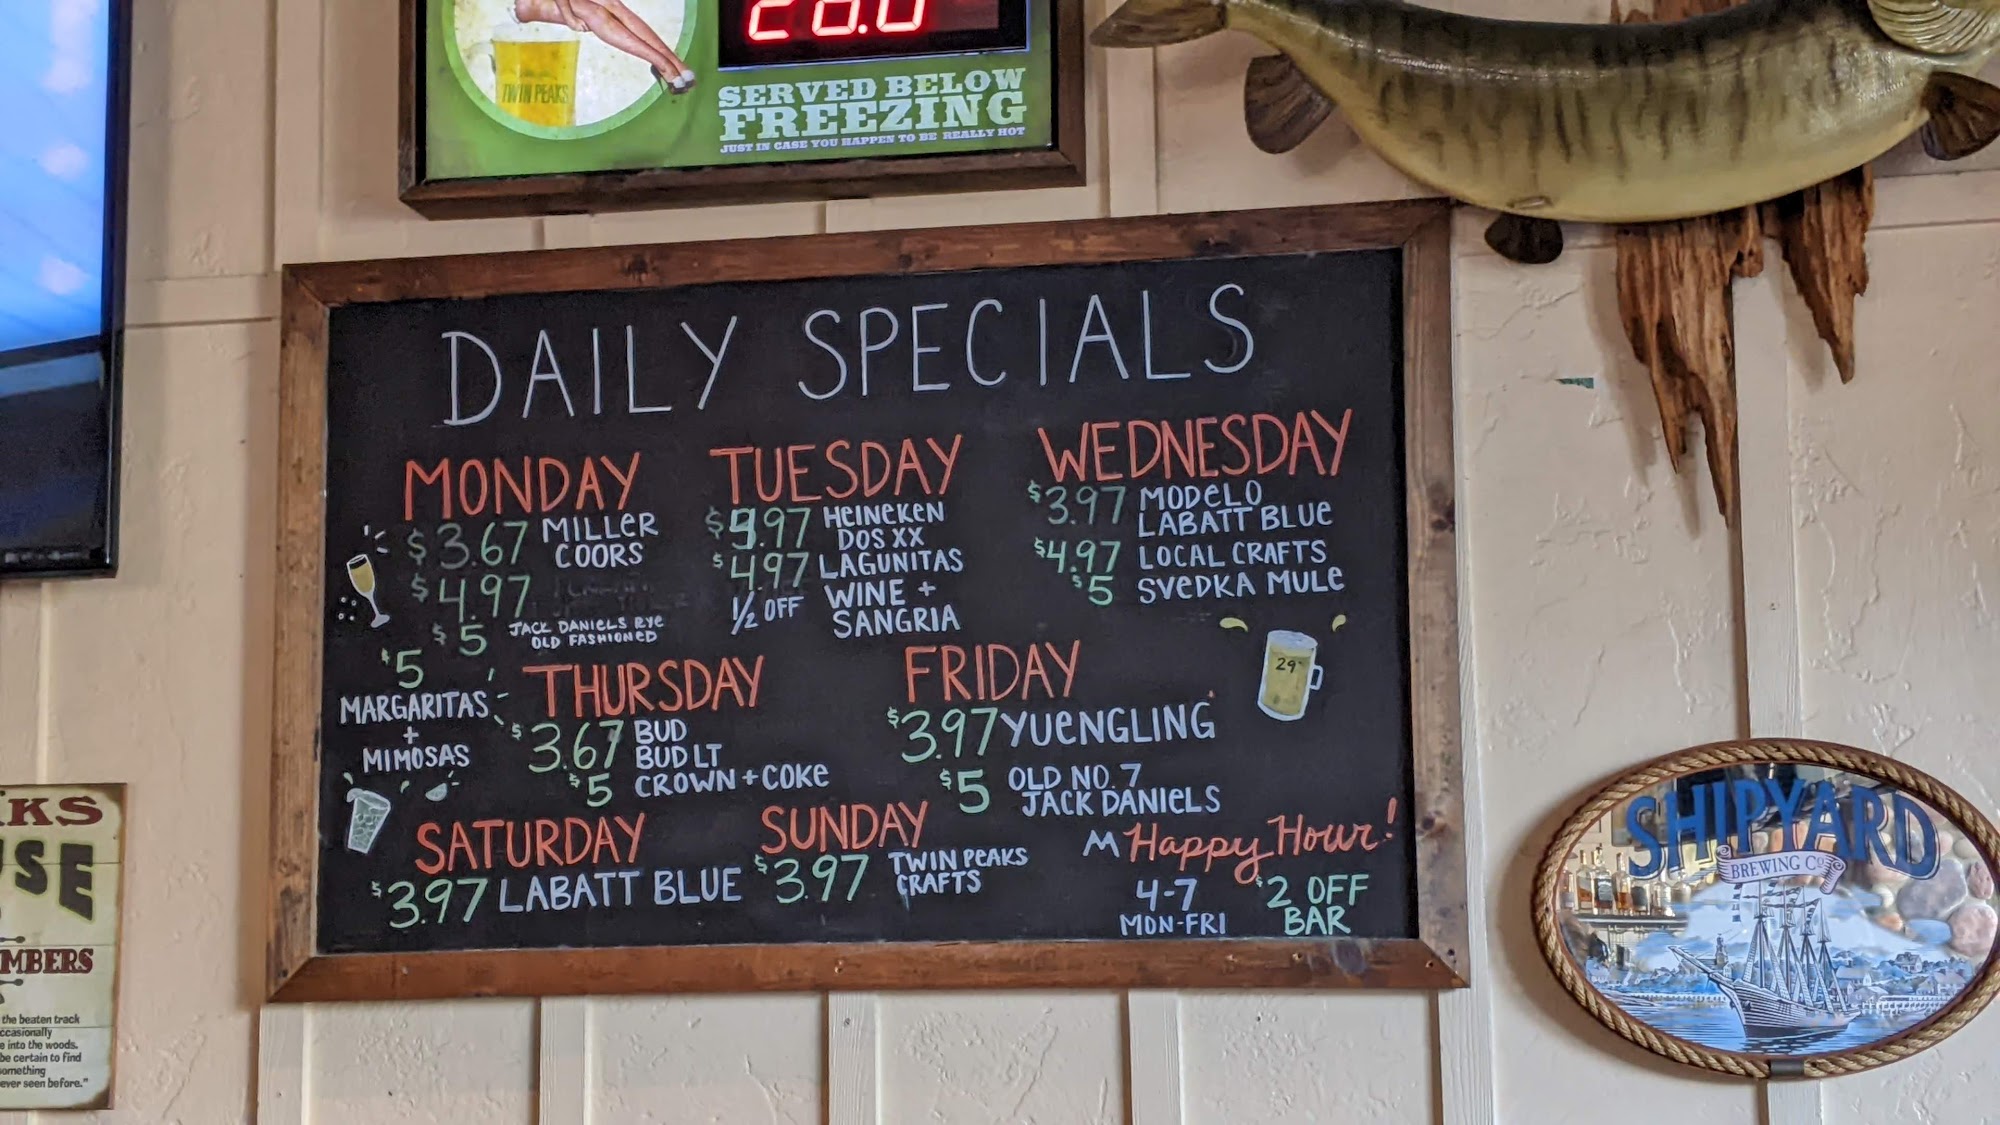 28.0
TWIN PEAKS
SERVED BELOW
FREEZING
JUST IN CASE YOU HAPPEN TO BE REALLY HOT
DAILY SPECIALS
MONDAY
$3.67 MILLER
COORS
$4.97
$5 JACK DANIELS RYE
OLD FASHIONED
TUESDAY
$3.97 HEINEKEN
DOS XX
$4.97 LAGUNITAS
1/2 OFF WINE +
SANGRIA
WEDNESDAY
$3.97 MODELO
LABATT BLUE
$4.97 LOCAL CRAFTS
$5 SVEDKA MULE
$5
MARGARITAS
+
MIMOSAS
THURSDAY
$3.67 BUD
BUD LT
$5 CROWN + COKE
FRIDAY
$3.97 YUENGLING
$5 OLD NO. 7
JACK DANIELS
29°
SATURDAY
$3.97 LABATT BLUE
SUNDAY
$3.97 TWIN PEAKS
CRAFTS
Happy Hour!
4-7
MON-FRI
$2 OFF
BAR
KS
USE
MBERS
the beaten track
ccasionally
e into the woods.
be certain to find
something
ever seen before."
SHIPYARD
BREWING CO